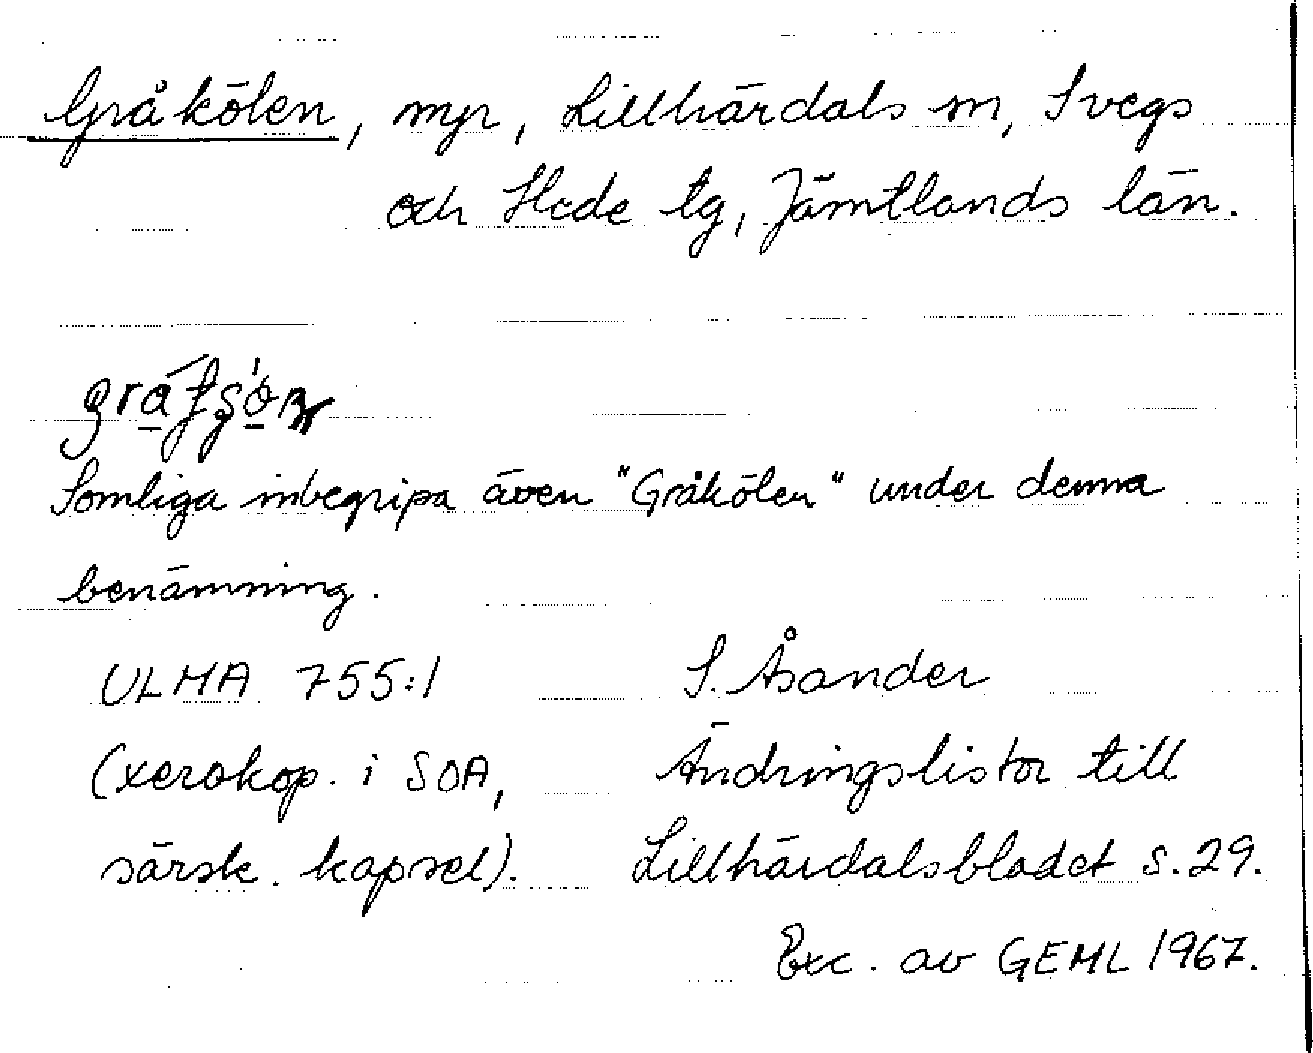 Gråkölen, myr, Lillhärdals sn, Svegs
och Hede tg, Jämtlands län.
Somliga inbegripa även "Gråkölen" under denna
benämning.
ULMA 755:1 S. Åsander
(xerokop. i SOA, Ändringslistor till
särsk. kapsel). Lillhärdalsbladet s.29.
Exc. av GEML 1967.